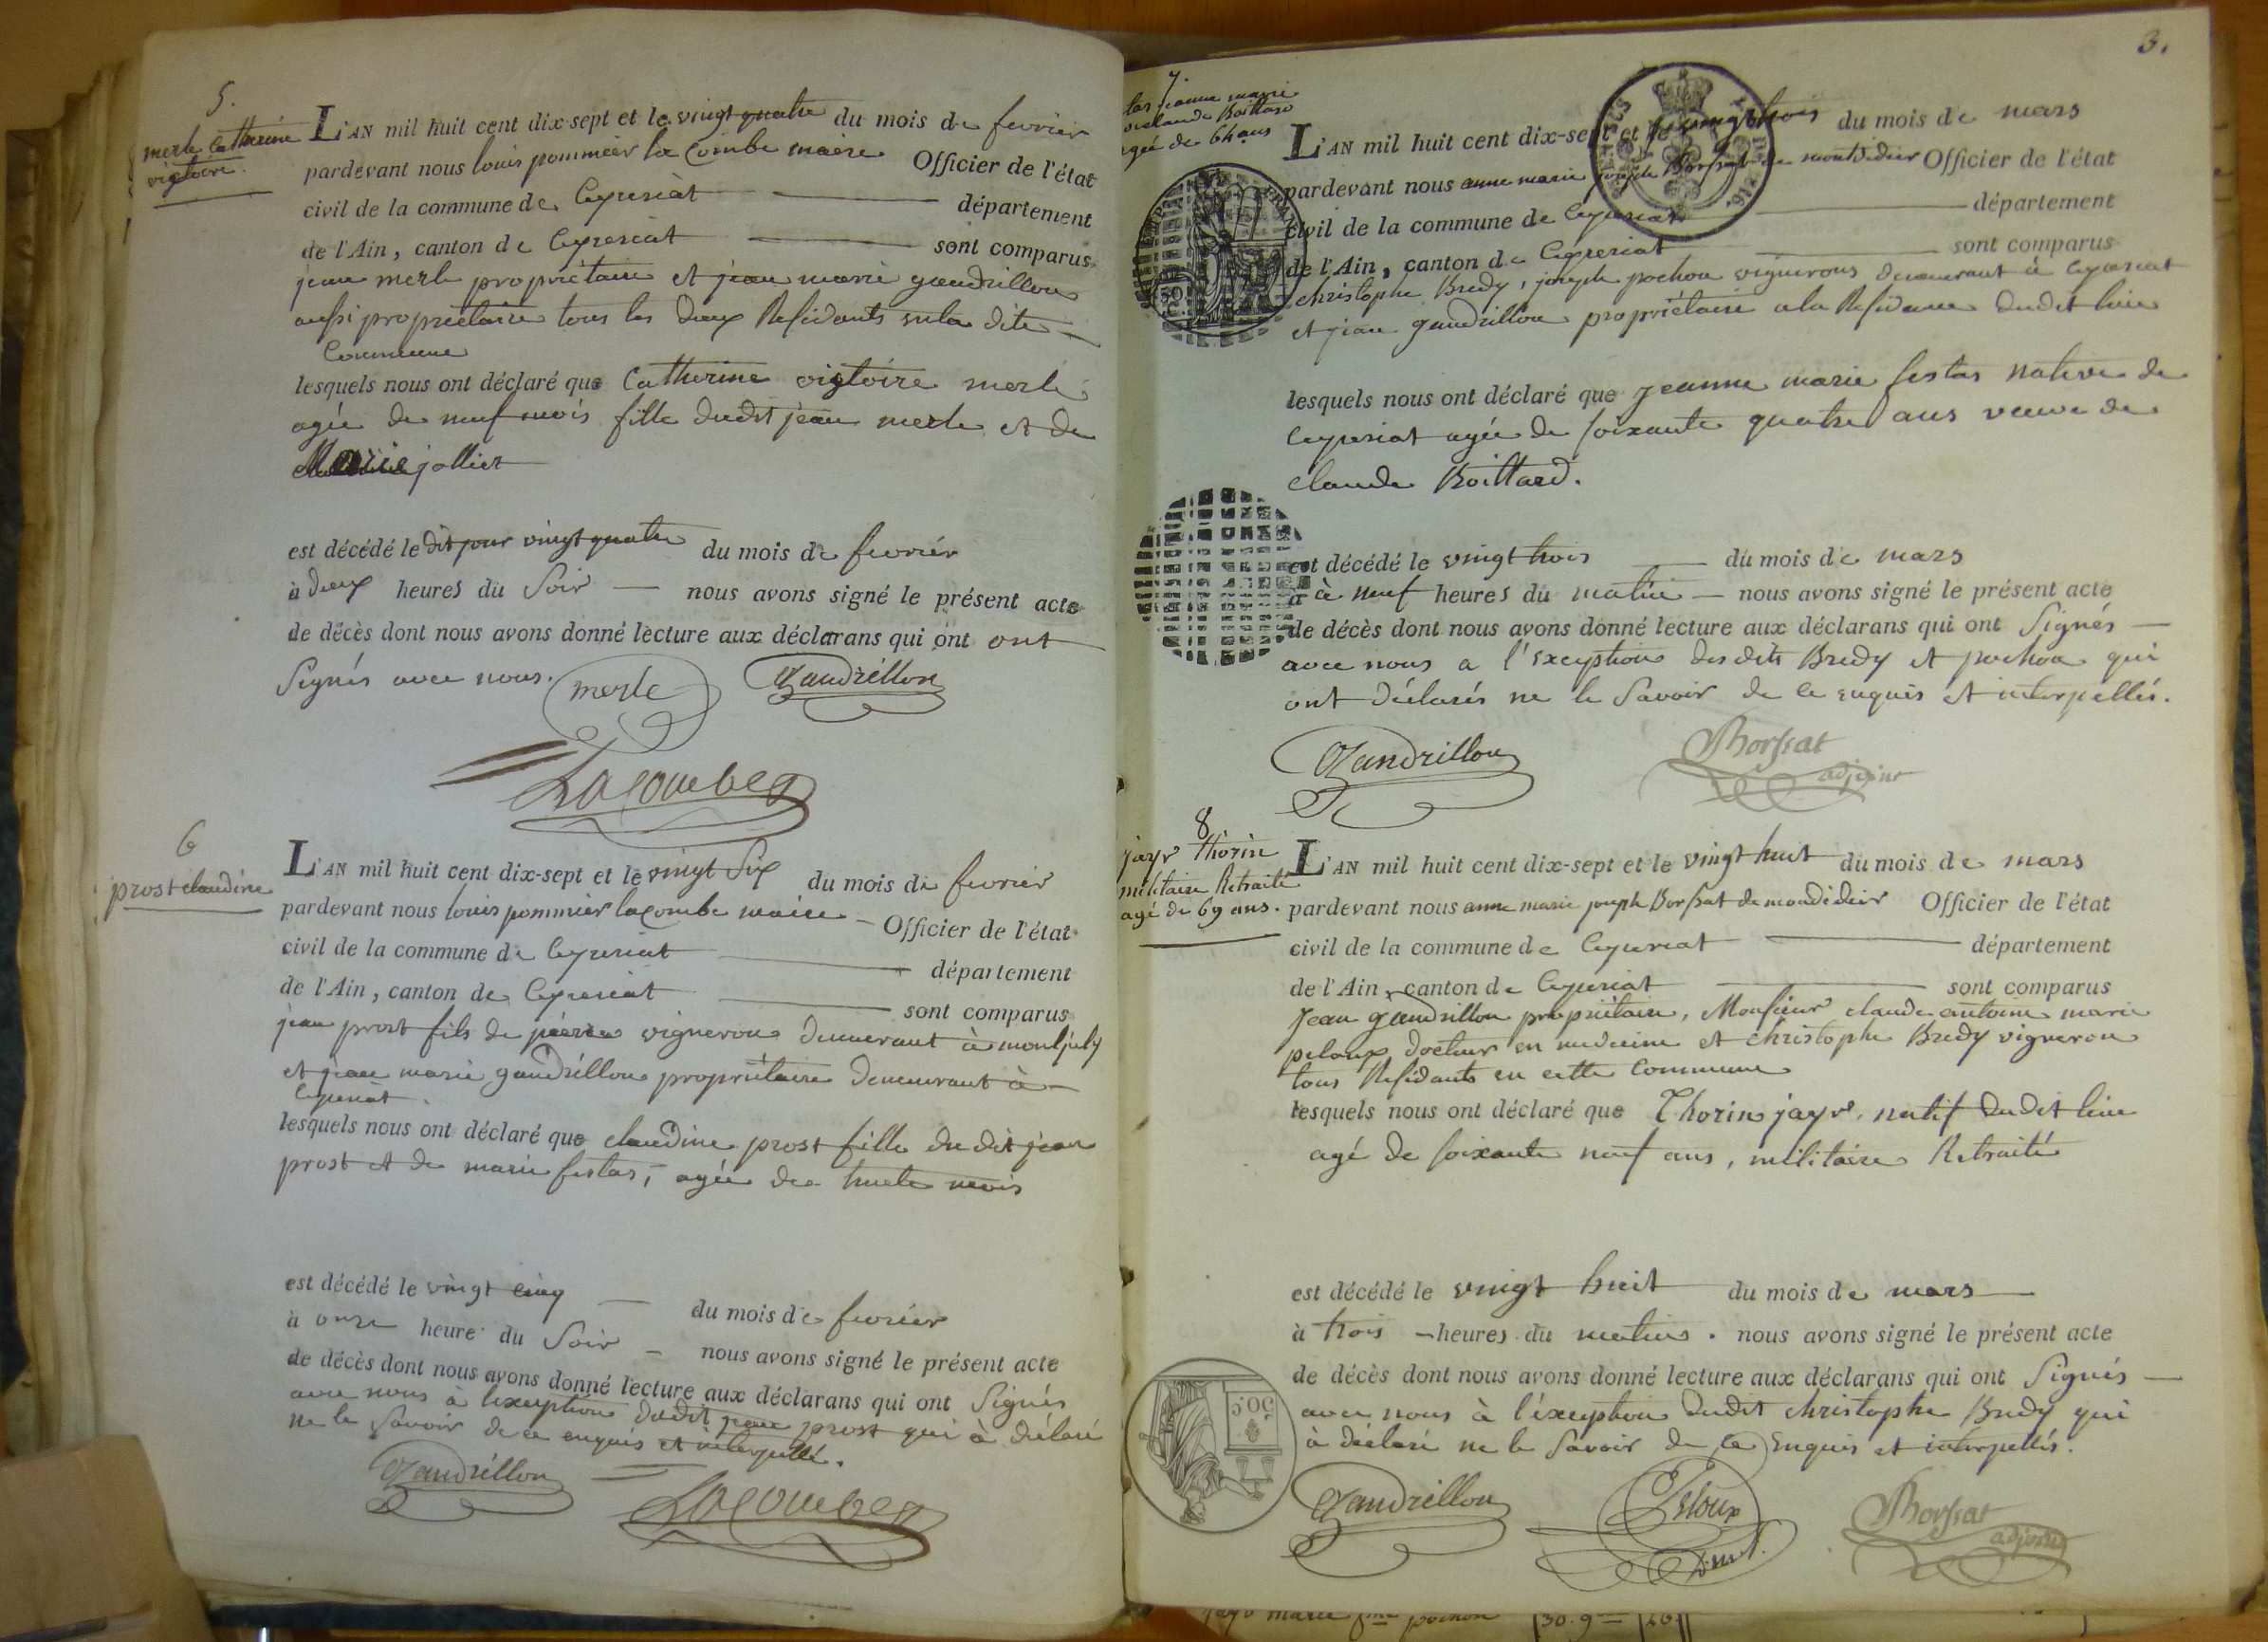 5.
merle Catherine
victoire.
L'AN mil huit cent dix-sept et le vingt quatre du mois de fevrier
pardevant nous louis pommier la Combe maire Officier de l'état
civil de la commune de Ceyzeriat département
de l'Ain, canton de Ceyzeriat sont comparus
jean merle propriétaire et jean marie gandrillon
aussi propriétaire tous les deux Résidants en la dite
Commune
lesquels nous ont déclaré que Catherine victoire merle
agée de neuf mois fille dudit jean merle et de
Marie jollier
est décédé le dit jour vingt quatre du mois de fevriér
à deux heures du Soir nous avons signé le présent acte
de décès dont nous avons donné lecture aux déclarans qui ont ont
Signés avec nous.
merle gandrillon
Lacombe
6
prost claudine
L'AN mil huit cent dix-sept et le vingt Six du mois de fevrier
pardevant nous louis pommier lacombe maire Officier de l'état
civil de la commune de Ceyzeriat département
de l'Ain, canton de Ceyzeriat sont comparus
jean prost fils de pierre vigneron demeurant à montjuly
et jean marie gandrillon propriétaire demeurant à
Ceyzeriat.
lesquels nous ont déclaré que claudine prost fille du dit jean
prost et de marie festas, agée de huit mois
est décédé le vingt cinq du mois de fevriér
à onze heure du Soir nous avons signé le présent acte
de décès dont nous avons donné lecture aux déclarans qui ont Signés
avec nous à lexception dudit jean prost qui à déclaré
ne le Savoir de ce enquis et interpellé.
gandrillon Lacombe
3.
7.
tas jeanne marie
claude Boittard
agée de 64 ans
L'AN mil huit cent dix-sept et le vingt trois du mois de mars
pardevant nous anne marie joseph Borssat de montdidier Officier de l'état
civil de la commune de Ceyzeriat département
de l'Ain, canton de Ceyzeriat sont comparus
christophe Bredy, joseph pochon vignerons demeurant à Ceyzeriat
et jean gandrillon propriétaire a la Résidance dudit lieu
lesquels nous ont déclaré que jeanne marie festas native de
Ceyzeriat agée de soixante quatre ans veuve de
claude Boittard.
est décédé le vingt trois du mois de mars
à à neuf heures du matin nous avons signé le présent acte
de décès dont nous avons donné lecture aux déclarans qui ont Signés
avec nous a l'exception desdits Bredy et pochon qui
ont déclarés ne le Savoir de ce enquis et interpellés.
gandrillon Borssat
adjoint
8
jayr thorin
militaire Retraité
agé de 69 ans.
L'AN mil huit cent dix-sept et le vingt huit du mois de mars
pardevant nous anne marie joseph Borssat de mondidier Officier de l'état
civil de la commune de Ceyzeriat département
de l'Ain, canton de Ceyzeriat sont comparus
Jean gandrillon propriétaire, Monsieur claude antoine marie
peloux docteur en medecine et christophe Bredy vigneron
tous Résidants en cette Commune
lesquels nous ont déclaré que Thorin jayr, natif dudit lieu
agé de soixante neuf ans, militaire Retraité
est décédé le vingt huit du mois de mars
à trois heures du matin. nous avons signé le présent acte
de décès dont nous avons donné lecture aux déclarans qui ont Signés
avec nous à l'éxception dudit christophe Bredy qui
à déclaré ne le Savoir de ce Enquis et interpellés.
50C
gandrillon Peloux
D.m. Borssat
adjoint